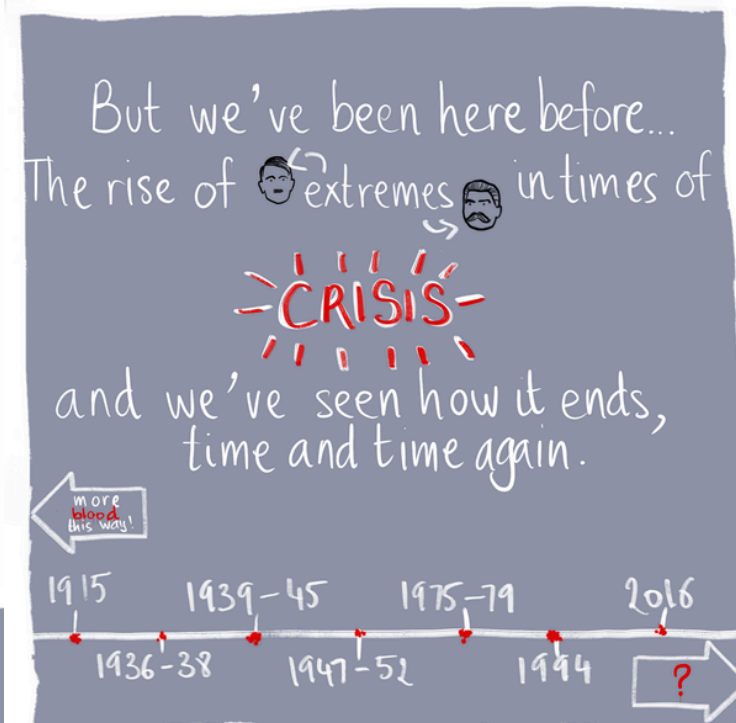 But we've been here before...
The rise of extremes in times of
CRISIS
and we've seen how it ends,
time and time again.
more
blood
this way!
1915 1939-45 1975-79 2016
1936-38 1947-52 1994
?